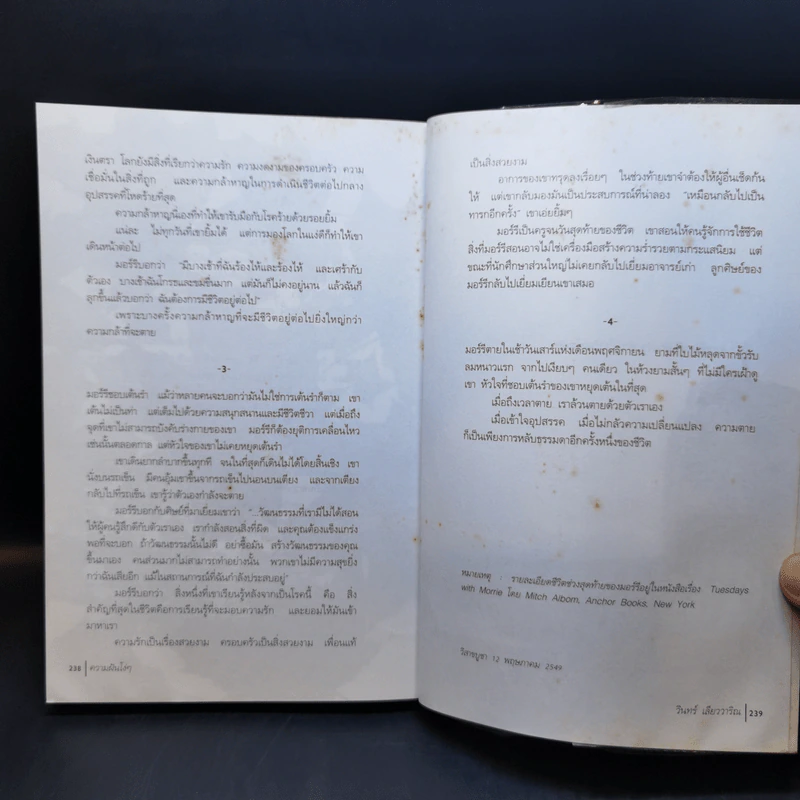 เงินตรา โลกยังมีสิ่งที่เรียกว่าความรัก ความงดงามของครอบครัว ความ
เชื่อมั่นในสิ่งที่ถูก และความกล้าหาญในการดำเนินชีวิตต่อไปกลาง
อุปสรรคที่โหดร้ายที่สุด
ความกล้าหาญนี้เองที่ทำให้เขารับมือกับโรคร้ายด้วยรอยยิ้ม
แน่ละ ไม่ทุกวันที่เขายิ้มได้ แต่การมองโลกในแง่ดีก็ทำให้เขา
เดินหน้าต่อไป
มอร์รีบอกว่า “มีบางเช้าที่ฉันร้องไห้และร้องไห้ และเศร้ากับ
ตัวเอง บางเช้าฉันโกรธและขมขื่นมาก แต่มันก็ไม่คงอยู่นาน แล้วฉันก็
ลุกขึ้นแล้วบอกว่า ฉันต้องการมีชีวิตอยู่ต่อไป”
เพราะบางครั้งความกล้าหาญที่จะมีชีวิตอยู่ต่อไปยิ่งใหญ่กว่า
ความกล้าที่จะตาย
-3-
มอร์รีชอบเต้นรำ แม้ว่าหลายคนจะบอกว่ามันไม่ใช่การเต้นรำก็ตาม เขา
เต้นไม่เป็นท่า แต่เต็มไปด้วยความสนุกสนานและมีชีวิตชีวา แต่เมื่อถึง
จุดที่เขาไม่สามารถบังคับร่างกายของเขา มอร์รีก็ต้องยุติการเคลื่อนไหว
เช่นนั้นตลอดกาล แต่หัวใจของเขาไม่เคยหยุดเต้นรำ
เขาเดินยากลำบากขึ้นทุกที จนในที่สุดก็เดินไม่ได้โดยสิ้นเชิง เขา
นั่งบนรถเข็น มีคนอุ้มเขาขึ้นจากรถเข็นไปนอนบนเตียง และจากเตียง
กลับไปที่รถเข็น เขารู้ว่าตัวเองกำลังจะตาย
มอร์รีบอกกับศิษย์ที่มาเยี่ยมเขาว่า “...วัฒนธรรมที่เรามีไม่ได้สอน
ให้ผู้คนรู้สึกดีกับตัวเราเอง เรากำลังสอนสิ่งที่ผิด และคุณต้องแข็งแกร่ง
พอที่จะบอก ถ้าวัฒนธรรมนั้นไม่ดี อย่าซื้อมัน สร้างวัฒนธรรมของคุณ
ขึ้นมาเอง คนส่วนมากไม่สามารถทำอย่างนั้น พวกเขาไม่มีความสุขยิ่ง
กว่าฉันเสียอีก แม้ในสถานการณ์ที่ฉันกำลังประสบอยู่”
มอร์รีบอกว่า สิ่งหนึ่งที่เขาเรียนรู้หลังจากเป็นโรคนี้ คือ สิ่ง
สำคัญที่สุดในชีวิตคือการเรียนรู้ที่จะมอบความรัก และยอมให้มันเข้า
มาหาเรา
ความรักเป็นเรื่องสวยงาม ครอบครัวเป็นสิ่งสวยงาม เพื่อนแท้
238 ความฝันโง่ๆ
เป็นสิ่งสวยงาม
อาการของเขาทรุดลงเรื่อยๆ ในช่วงท้ายเขาจำต้องให้ผู้อื่นเช็ดก้น
ให้ แต่เขากลับมองมันเป็นประสบการณ์ที่น่าลอง “เหมือนกลับไปเป็น
ทารกอีกครั้ง” เขาเอ่ยยิ้มๆ
มอร์รีเป็นครูจนวันสุดท้ายของชีวิต เขาสอนให้คนรู้จักการใช้ชีวิต
สิ่งที่มอร์รีสอนอาจไม่ใช่เครื่องมือสร้างความร่ำรวยตามกระแสนิยม แต่
ขณะที่นักศึกษาส่วนใหญ่ไม่เคยกลับไปเยี่ยมอาจารย์เก่า ลูกศิษย์ของ
มอร์รีกลับไปเยี่ยมเยียนเขาเสมอ
-4-
มอร์รีตายในเช้าวันเสาร์แห่งเดือนพฤศจิกายน ยามที่ใบไม้หลุดจากขั้วรับ
ลมหนาวแรก จากไปเงียบๆ คนเดียว ในห้วงยามสั้นๆ ที่ไม่มีใครเฝ้าดู
เขา หัวใจที่ชอบเต้นรำของเขาหยุดเต้นในที่สุด
เมื่อถึงเวลาตาย เราล้วนตายด้วยตัวเราเอง
เมื่อเข้าใจอุปสรรค เมื่อไม่กลัวความเปลี่ยนแปลง ความตาย
ก็เป็นเพียงการหลับธรรมดาอีกครั้งหนึ่งของชีวิต
หมายเหตุ : รายละเอียดชีวิตช่วงสุดท้ายของมอร์รีอยู่ในหนังสือเรื่อง Tuesdays
with Morrie โดย Mitch Albom, Anchor Books, New York
วิสาขบูชา 12 พฤษภาคม 2549
วินทร์ เลียววาริณ 239